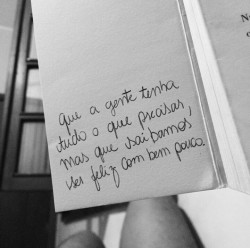 que a gente tenha
tudo o que precisar,
mas que saibamos
ser feliz com bem pouco.